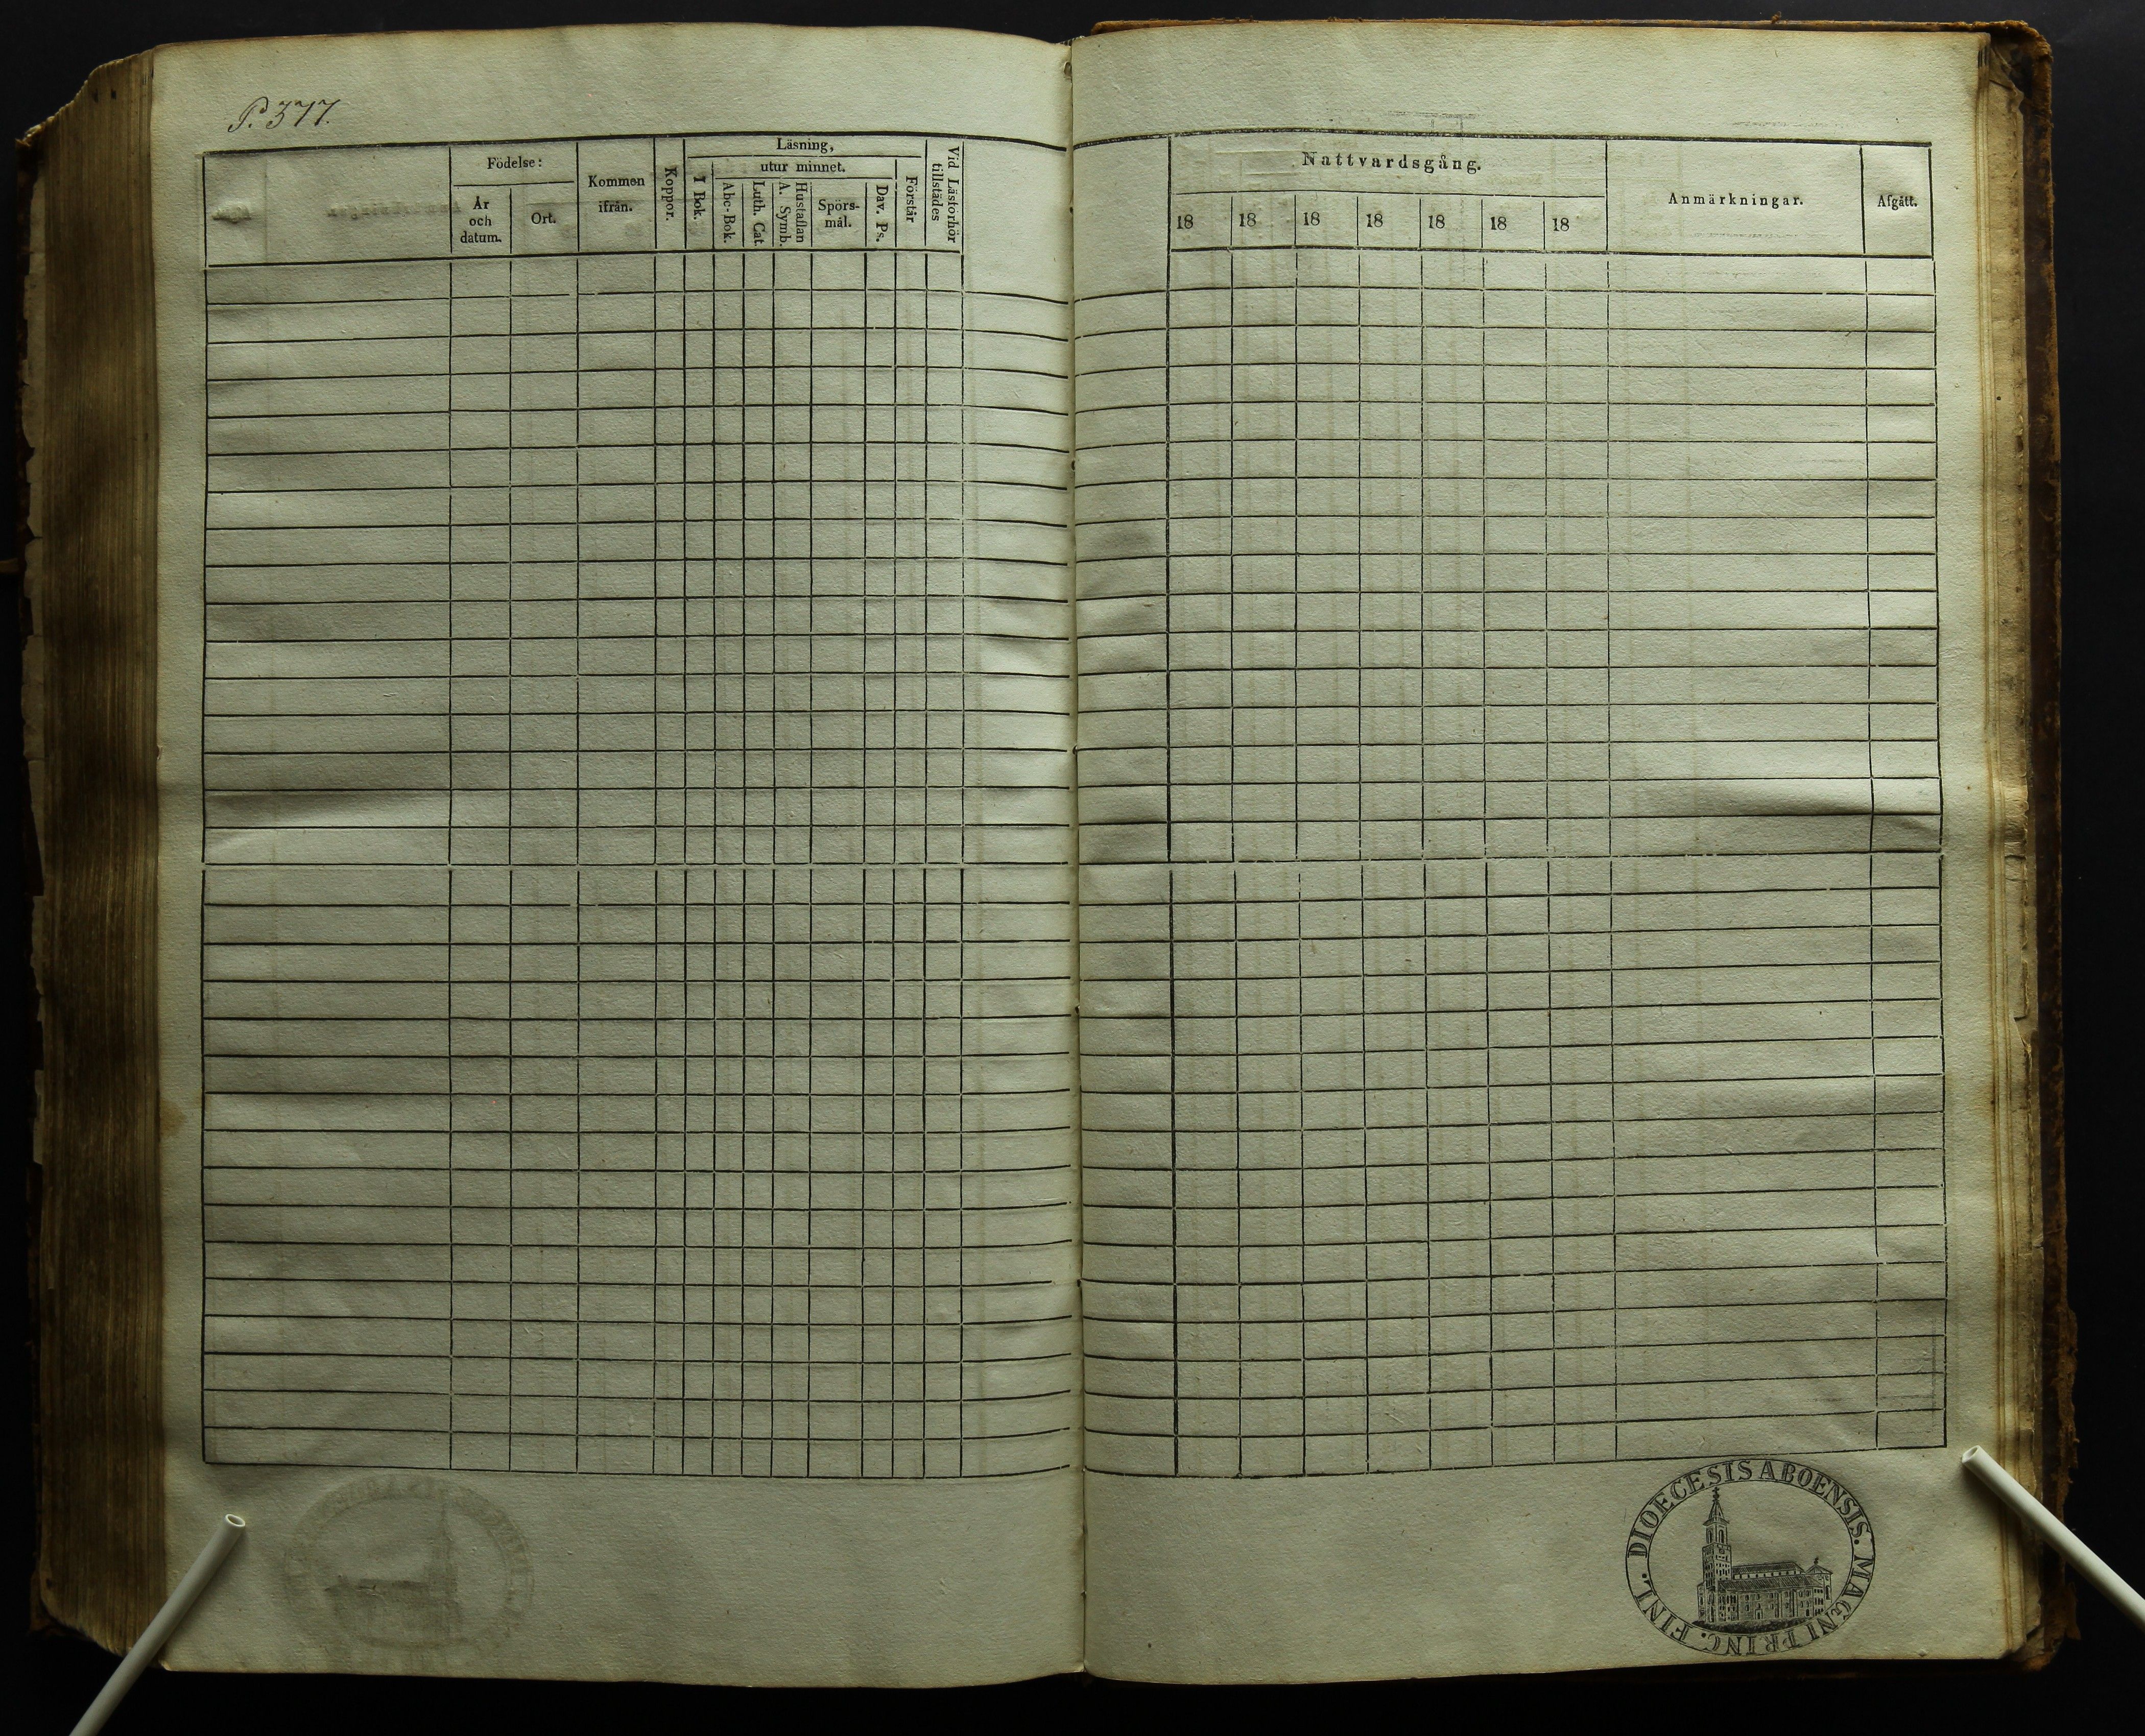 P. 377.
Födelse:
År
och
datum.
Ort.
Kommen
ifrån.
Koppor.
Läsning,
I Bok.
utur minnet.
Abc-Bok.
Luth. Cat.
Hustaflan
A. Symb.
Spörs-
mål.
Dav. Ps.
Förstår
Vid Läsförhör
tillstädes
Nattvardsgång.
18 18 18 18 18 18 18
Anmärkningar.
Afgått.
DIOECESIS ABOENSIS. MAGNI PRINC. FINL.